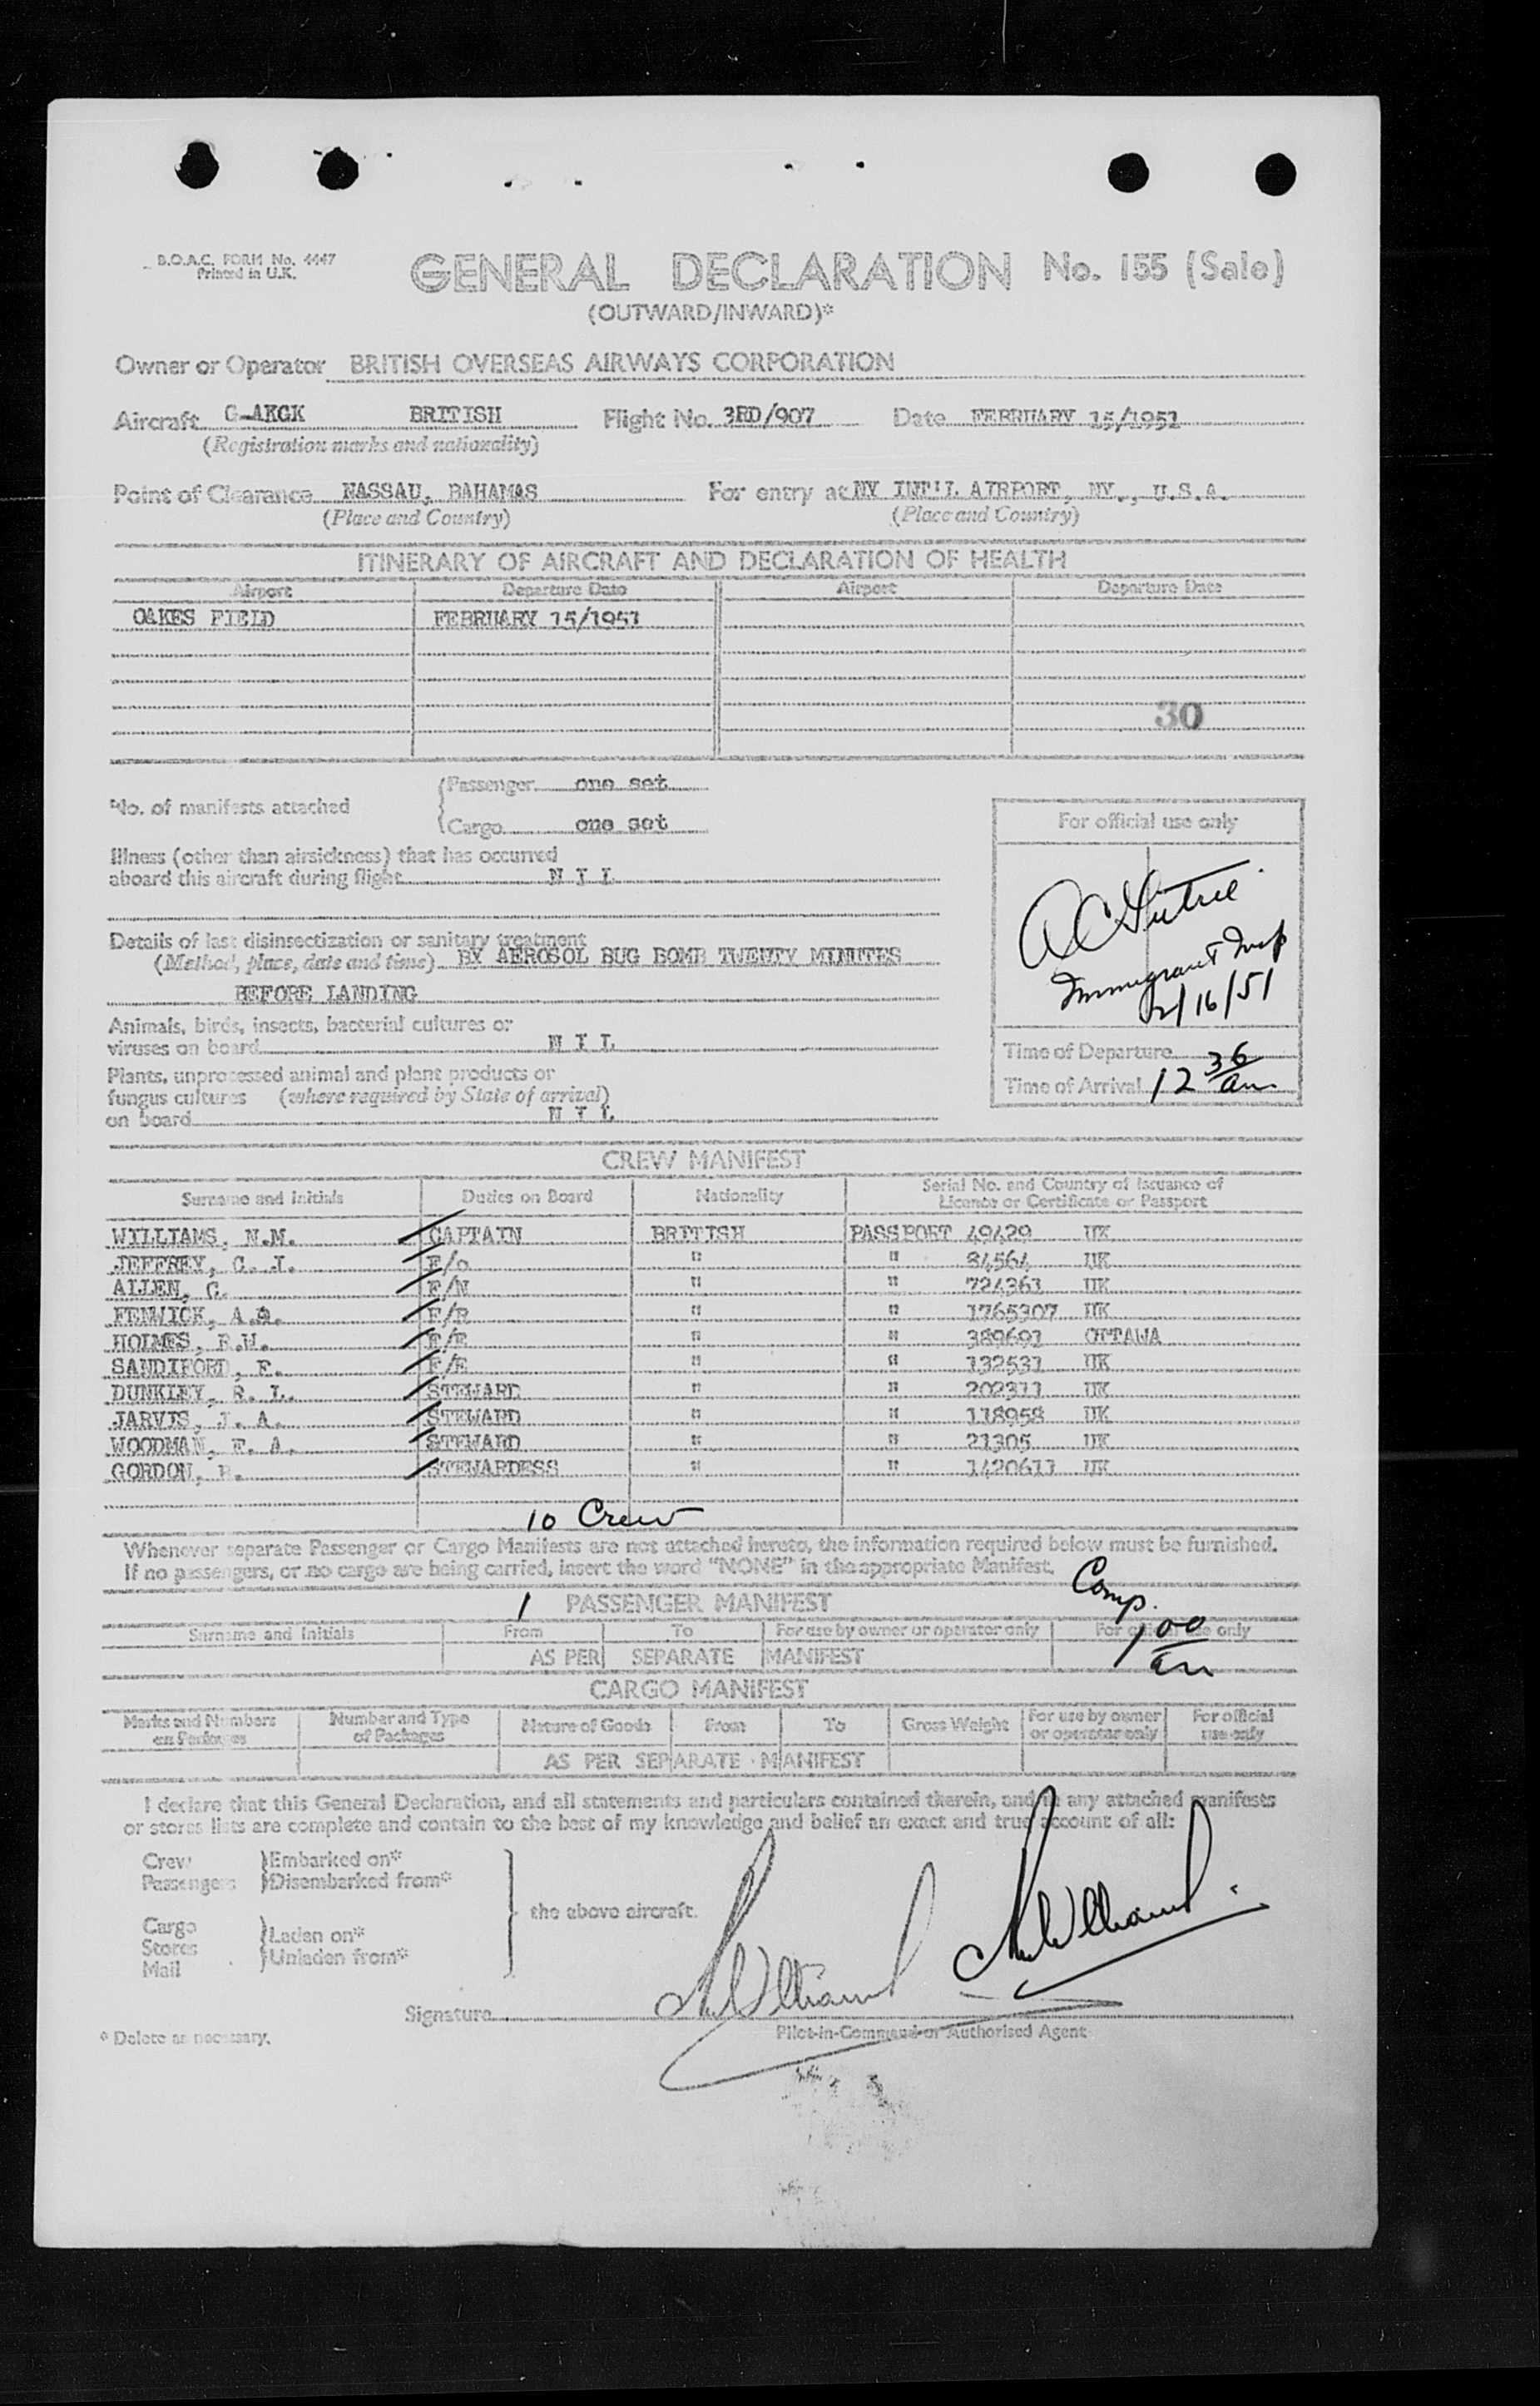 B.O.A.C. FORM No. 4447
Printed in U.K.
GENERAL DECLARATION No. 155 (Sale)
(OUTWARD/INWARD)*
Owner or Operator BRITISH OVERSEAS AIRWAYS CORPORATION
Aircraft G-AKGK BRITISH Flight No. 3RD/907 Date FEBRUARY 15/1951
(Registration marks and nationality)
Point of Clearance NASSAU, BAHAMAS For entry at NY INT'L AIRPORT, NY., U.S.A.
(Place and Country) (Place and Country)
ITINERARY OF AIRCRAFT AND DECLARATION OF HEALTH
Airport Departure Date Airport Departure Date
OAKES FIELD FEBRUARY 15/1951
30
No. of manifests attached
Passenger one set
Cargo one set
Illness (other than airsickness) that has occurred
aboard this aircraft during flight N I L
Details of last disinsectization or sanitary treatment
(Method, place, date and time) BY AEROSOL BUG BOMB TWENTY MINUTES
BEFORE LANDING
Animals, birds, insects, bacterial cultures or
viruses on board N I L
Plants, unprocessed animal and plant products or
fungus cultures (where required by State of arrival)
on board N I L
For official use only
Immigrant Insp
2/16/51
Time of Departure
Time of Arrival 12 36 am
CREW MANIFEST
Surname and Initials Duties on Board Nationality Serial No. and Country of Issuance of
Licence or Certificate or Passport
WILLIAMS, N.M. CAPTAIN BRITISH PASSPORT 49429 UK
JEFFREY, C. J. F/O " " 84564 UK
ALLEN, G. F/N " " 724361 UK
FENWICK, A. F/R " " 1765307 UK
HOLMES, R.W. F/E " " 389691 OTTAWA
SANDIFORD, F. F/E " " 132531 UK
DUNKLEY, R. L. STEWARD " " 202311 UK
JARVIS, J. A. STEWARD " " 118958 UK
WOODMAN, F. A. STEWARD " " 21305 UK
GORDON, STEWARDESS " " 1420611 UK
10 Crew
Whenever separate Passenger or Cargo Manifests are not attached hereto, the information required below must be furnished.
If no passengers, or no cargo are being carried, insert the word "NONE" in the appropriate Manifest.
Comp.
1 00 am
1 PASSENGER MANIFEST
Surname and Initials From To For use by owner or operator only For official use only
AS PER SEPARATE MANIFEST
CARGO MANIFEST
Marks and Numbers on Packages Number and Type of Packages Nature of Goods From To Gross Weight For use by owner or operator only For official use only
AS PER SEPARATE MANIFEST
I declare that this General Declaration, and all statements and particulars contained therein, and in any attached manifests
or stores lists are complete and contain to the best of my knowledge and belief an exact and true account of all:
Crew
Passengers
Embarked on*
Disembarked from*
Cargo
Stores
Mail
Laden on*
Unladen from*
the above aircraft.
Signature NM Williams NM Williams
Pilot-in-Command or Authorised Agent
* Delete as necessary.